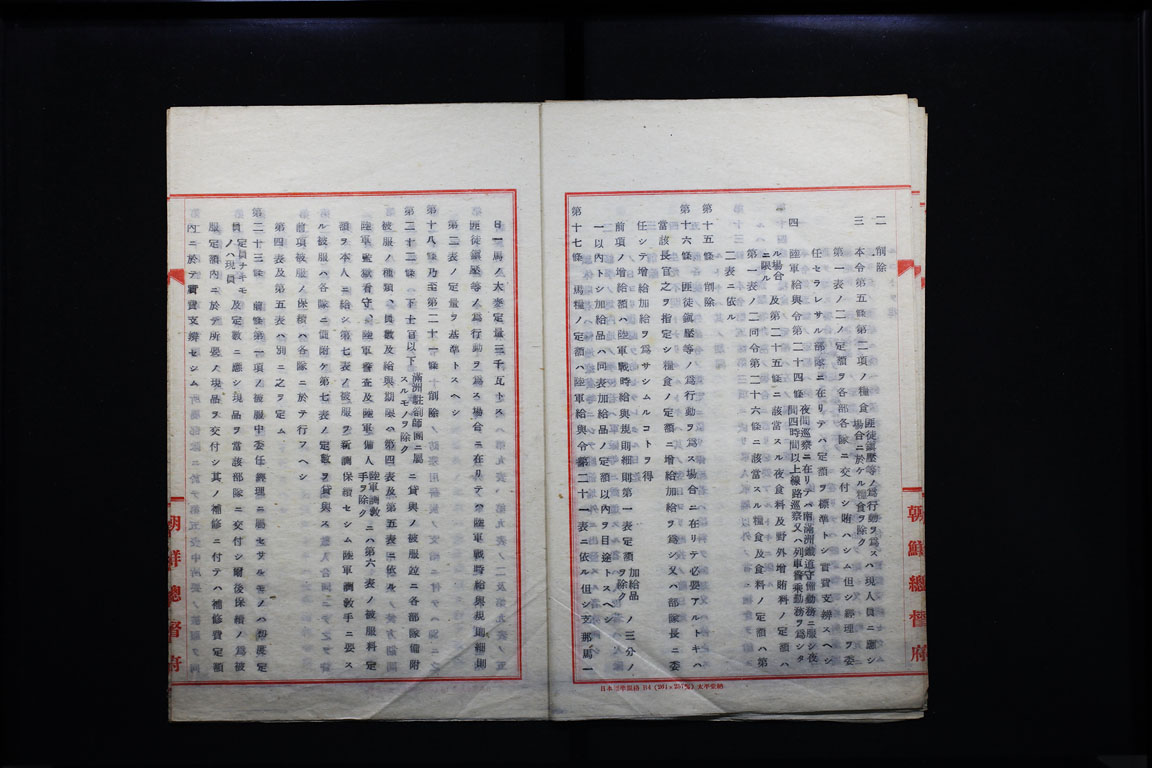 二 削除
三 本令第五條第二項ノ糧食 匪徒鎭壓等ノ爲行動ヲ爲ス場合ニ於ケル糧食ヲ除ク ハ現人員ニ應シ
第一表ノ二ノ定額ヲ各部各隊ニ交付シ賄ハシム但シ經理ヲ委
任セラレサル部隊ニ在リテハ定額ヲ標準トシ實費支辨スヘシ
四 陸軍給與令第二十四條 夜間巡察ニ在リテハ南滿洲鐵道守備勤務ニ服シ夜間四時間以上線路巡察又ハ列車警乘勤務ヲ爲シタ
ル場合ニ限ル 及第二十五條ニ該當スル夜食料及野外增賄料ノ定額ハ
第一表ノ二同令第二十六條ニ該當スル糧食及食料ノ定額ハ第
二表ニ依ル
第十五條 削除
第十六條 匪徒鎭壓等ノ爲行動ヲ爲ス場合ニ在リテ必要アルトキハ
當該長官之ヲ指定シ糧食ノ定額ニ增給加給ヲ爲シ又ハ部隊長ニ委
任シテ增給加給ヲ爲サシムルコトヲ得
前項ノ增給額ハ陸軍戰時給與規則細則第一表定額 加給品ヲ除ク ノ三分ノ
一以內トシ加給品ハ同表加給品ノ定額以內ヲ目途トスヘシ
第十七條 馬糧ノ定額ハ陸軍給與令第二十一表ニ依ル但シ支那馬一
日本標準規格B4
朝鮮總督府
日一馬ノ大麥定量三千瓦トス
匪徒鎭壓等ノ爲行動ヲ爲ス場合ニ在リテハ陸軍戰時給與規則細則
第二表ノ定量ヲ基準トスヘシ
第十八條乃至第二十一條 削除
第二十二條 下士官以下 滿洲駐劄師團ニ屬スルモノヲ除ク ニ貸與ノ被服竝ニ各部隊備附
被服ノ種類、員數及給與期限ハ第四表及第五表ニ依ル
陸軍監獄看守、陸軍警査及陸軍傭人 陸軍調敎手ヲ除ク ニハ第六表ノ被服料定
額ヲ本人ニ給シ第七表ノ被服ヲ新調保續セシム陸軍調敎手ニ要ス
ル被服ハ各隊ニ備附ケ第七表ノ定數ヲ貸與ス
前項被服ノ保續ハ各隊ニ於テ行フヘシ
第四表及第五表ハ別ニ之ヲ定ム
第二十三條 前條第一項ノ被服中委任經理ニ屬セサルモノハ初度定
員 定員ナキモノハ現員 及定數ニ應シ現品ヲ當該部隊ニ交付シ爾後保續ノ爲被
服定額內ニ於テ所要ノ現品ヲ交付シ其ノ補修ニ付テハ補修費定額
內ニ於テ實費支辨セシム
朝鮮總督府